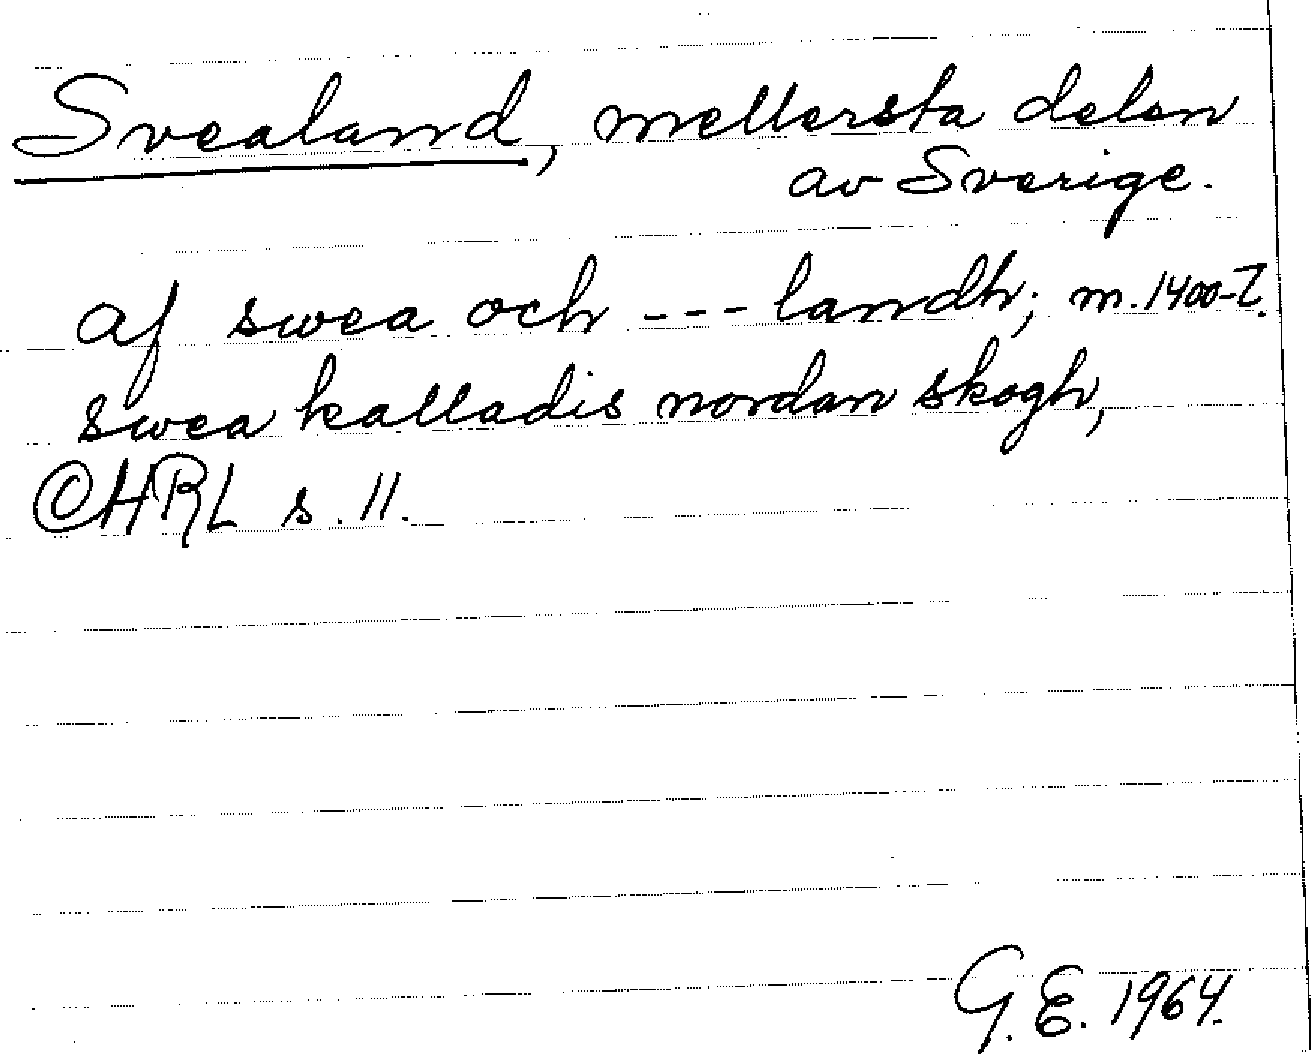 Svealand, mellersta delen
av Sverige.
af swea och --- landh; m. 1400-t.
swea kalladis nordan skogh,
CHRL s. 11.
G.E. 1964.